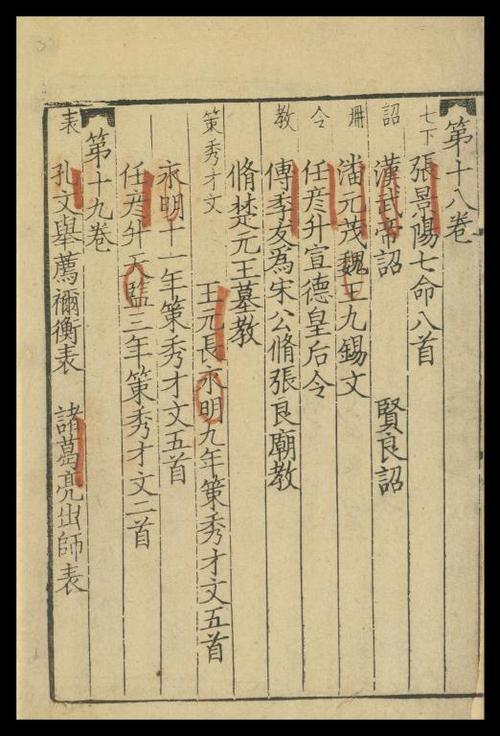 第十八卷
七下
張景陽七命八首
詔
漢武帝詔 賢良詔
冊
潘元茂魏王九錫文
令
任彦升宣德皇后令
教
傅季友為宋公脩張良廟教
脩楚元王墓教
策秀才文
王元長永明九年策秀才文五首
永明十一年策秀才文五首
任彦升天監三年策秀才文二首
第十九卷
表
孔文舉薦禰衡表 諸葛亮出師表